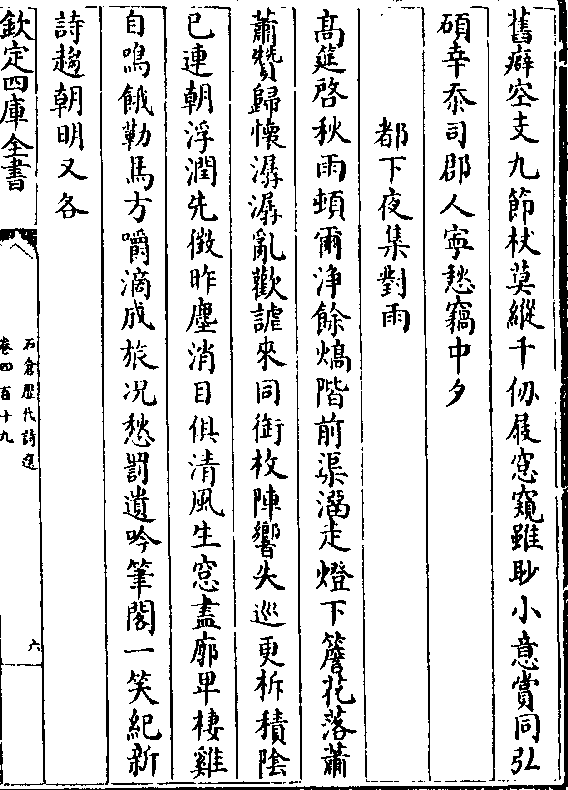 舊癖空支九節杖莫縱千仞屐窓窺雖眇小意賞同弘
碩幸忝司郡人寧愁竊中夕
都下夜集對雨
髙筵啓秋雨頓爾浄餘熇階前渠溜走燈下簷花落蕭
蕭贊歸懷潺潺亂歡謔來同銜枚陣響失巡更柝積陰
已連朝浮潤先徴昨塵消目俱清風生窓盡廓卑棲雞
自鳴餓勒馬方嚼滴成旅况愁罰遺吟筆閣一笑紀新
詩趨朝明又各
欽定四庫全書
石倉歴代詩選
卷四百十九
六